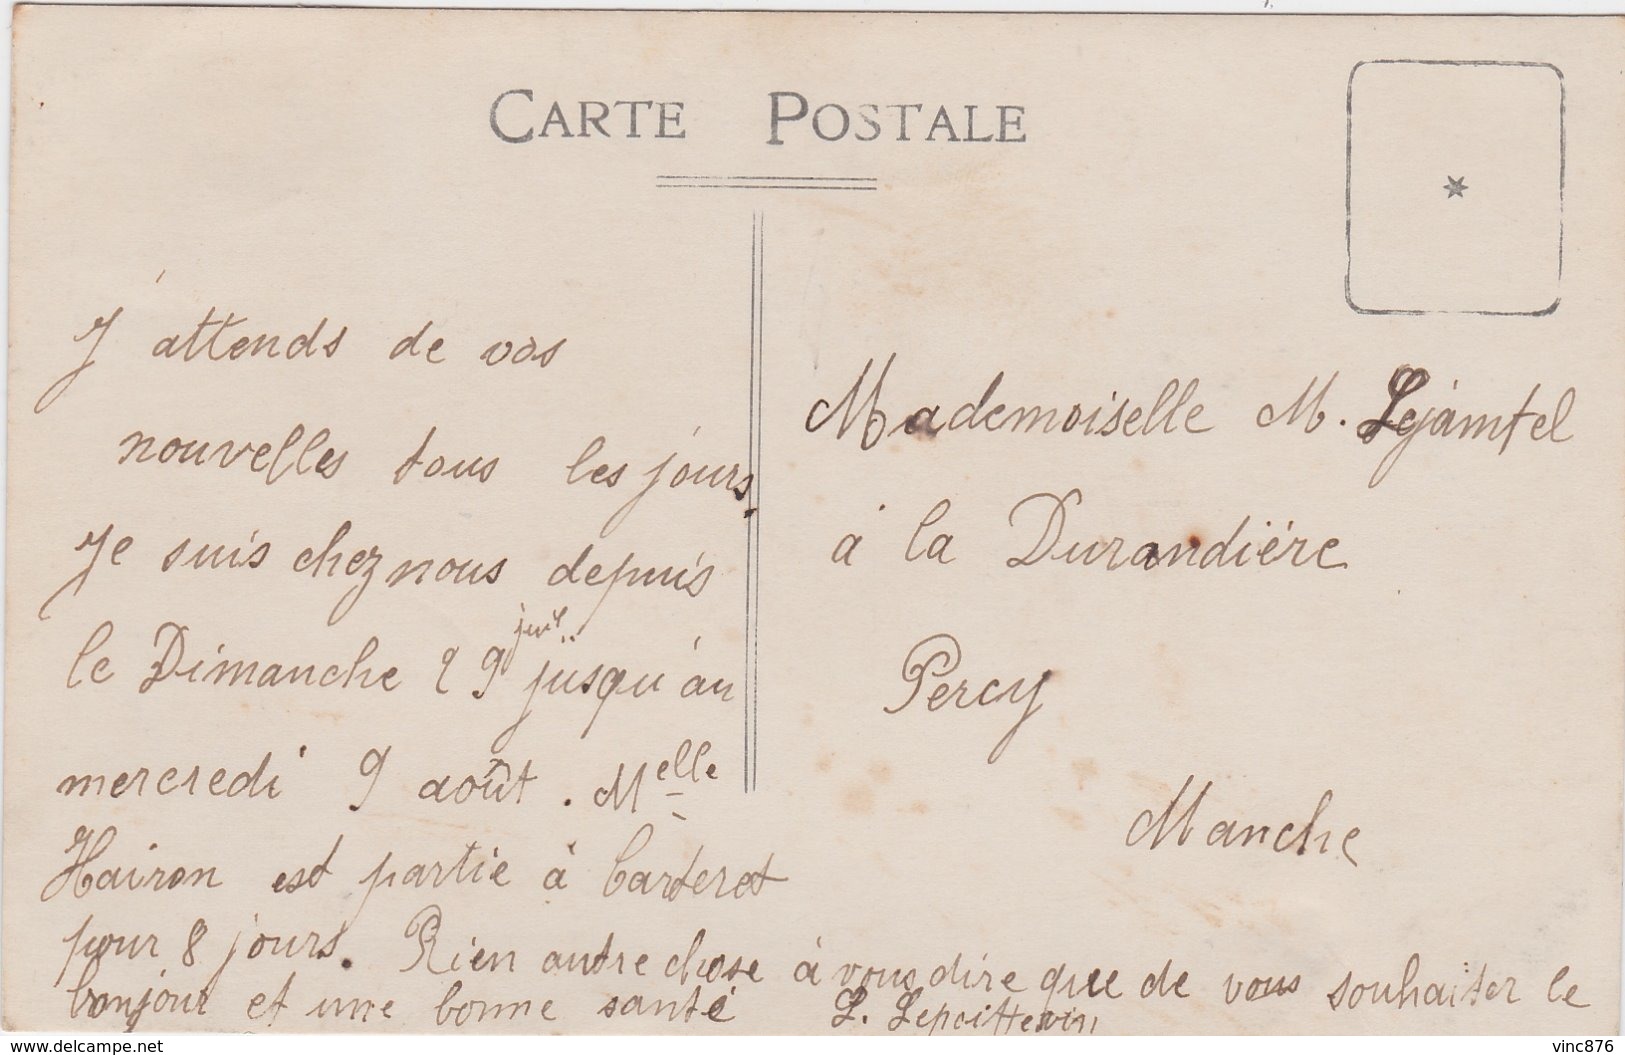 CARTE POSTALE
J'attends de vos
nouvelles tous les jours.
Je suis chez nous depuis
le Dimanche 29 juil.. jusqu'au
mercredi 9 août. Melle
Hairon est partie à Carteret
pour 8 jours. Rien autre chose à vous dire que de vous souhaiter le
bonjour et une bonne santé
L. Lepoittevin
Mademoiselle M. Lejamtel
à la Durandière
Percy
Manche
www.delcampe.net
vinc876